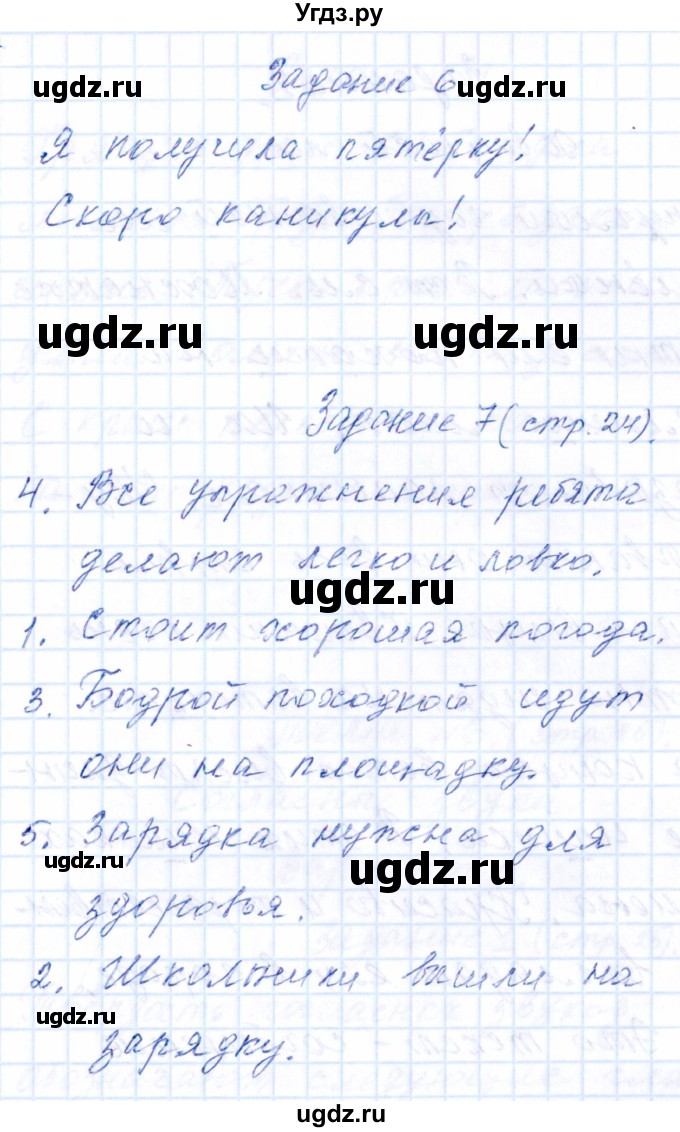 Угдз.ру
ugdz.ru Задание 6 ugdz.ru
Я получила пятёрку!
Скоро каникулы!
ugdz.ru ugdz.ru
Задание 7 (стр. 24).
4. Все упражнения ребята
делают легко и ловко.
ugdz.ru
1. Стоит хорошая погода.
3. Бодрой походкой идут
они на площадку.
5. Зарядка нужна для
ugdz.ru ugdz.ru
здоровья.
2. Школьники вышли на
ugdz.ru
зарядку.
ugdz.ru